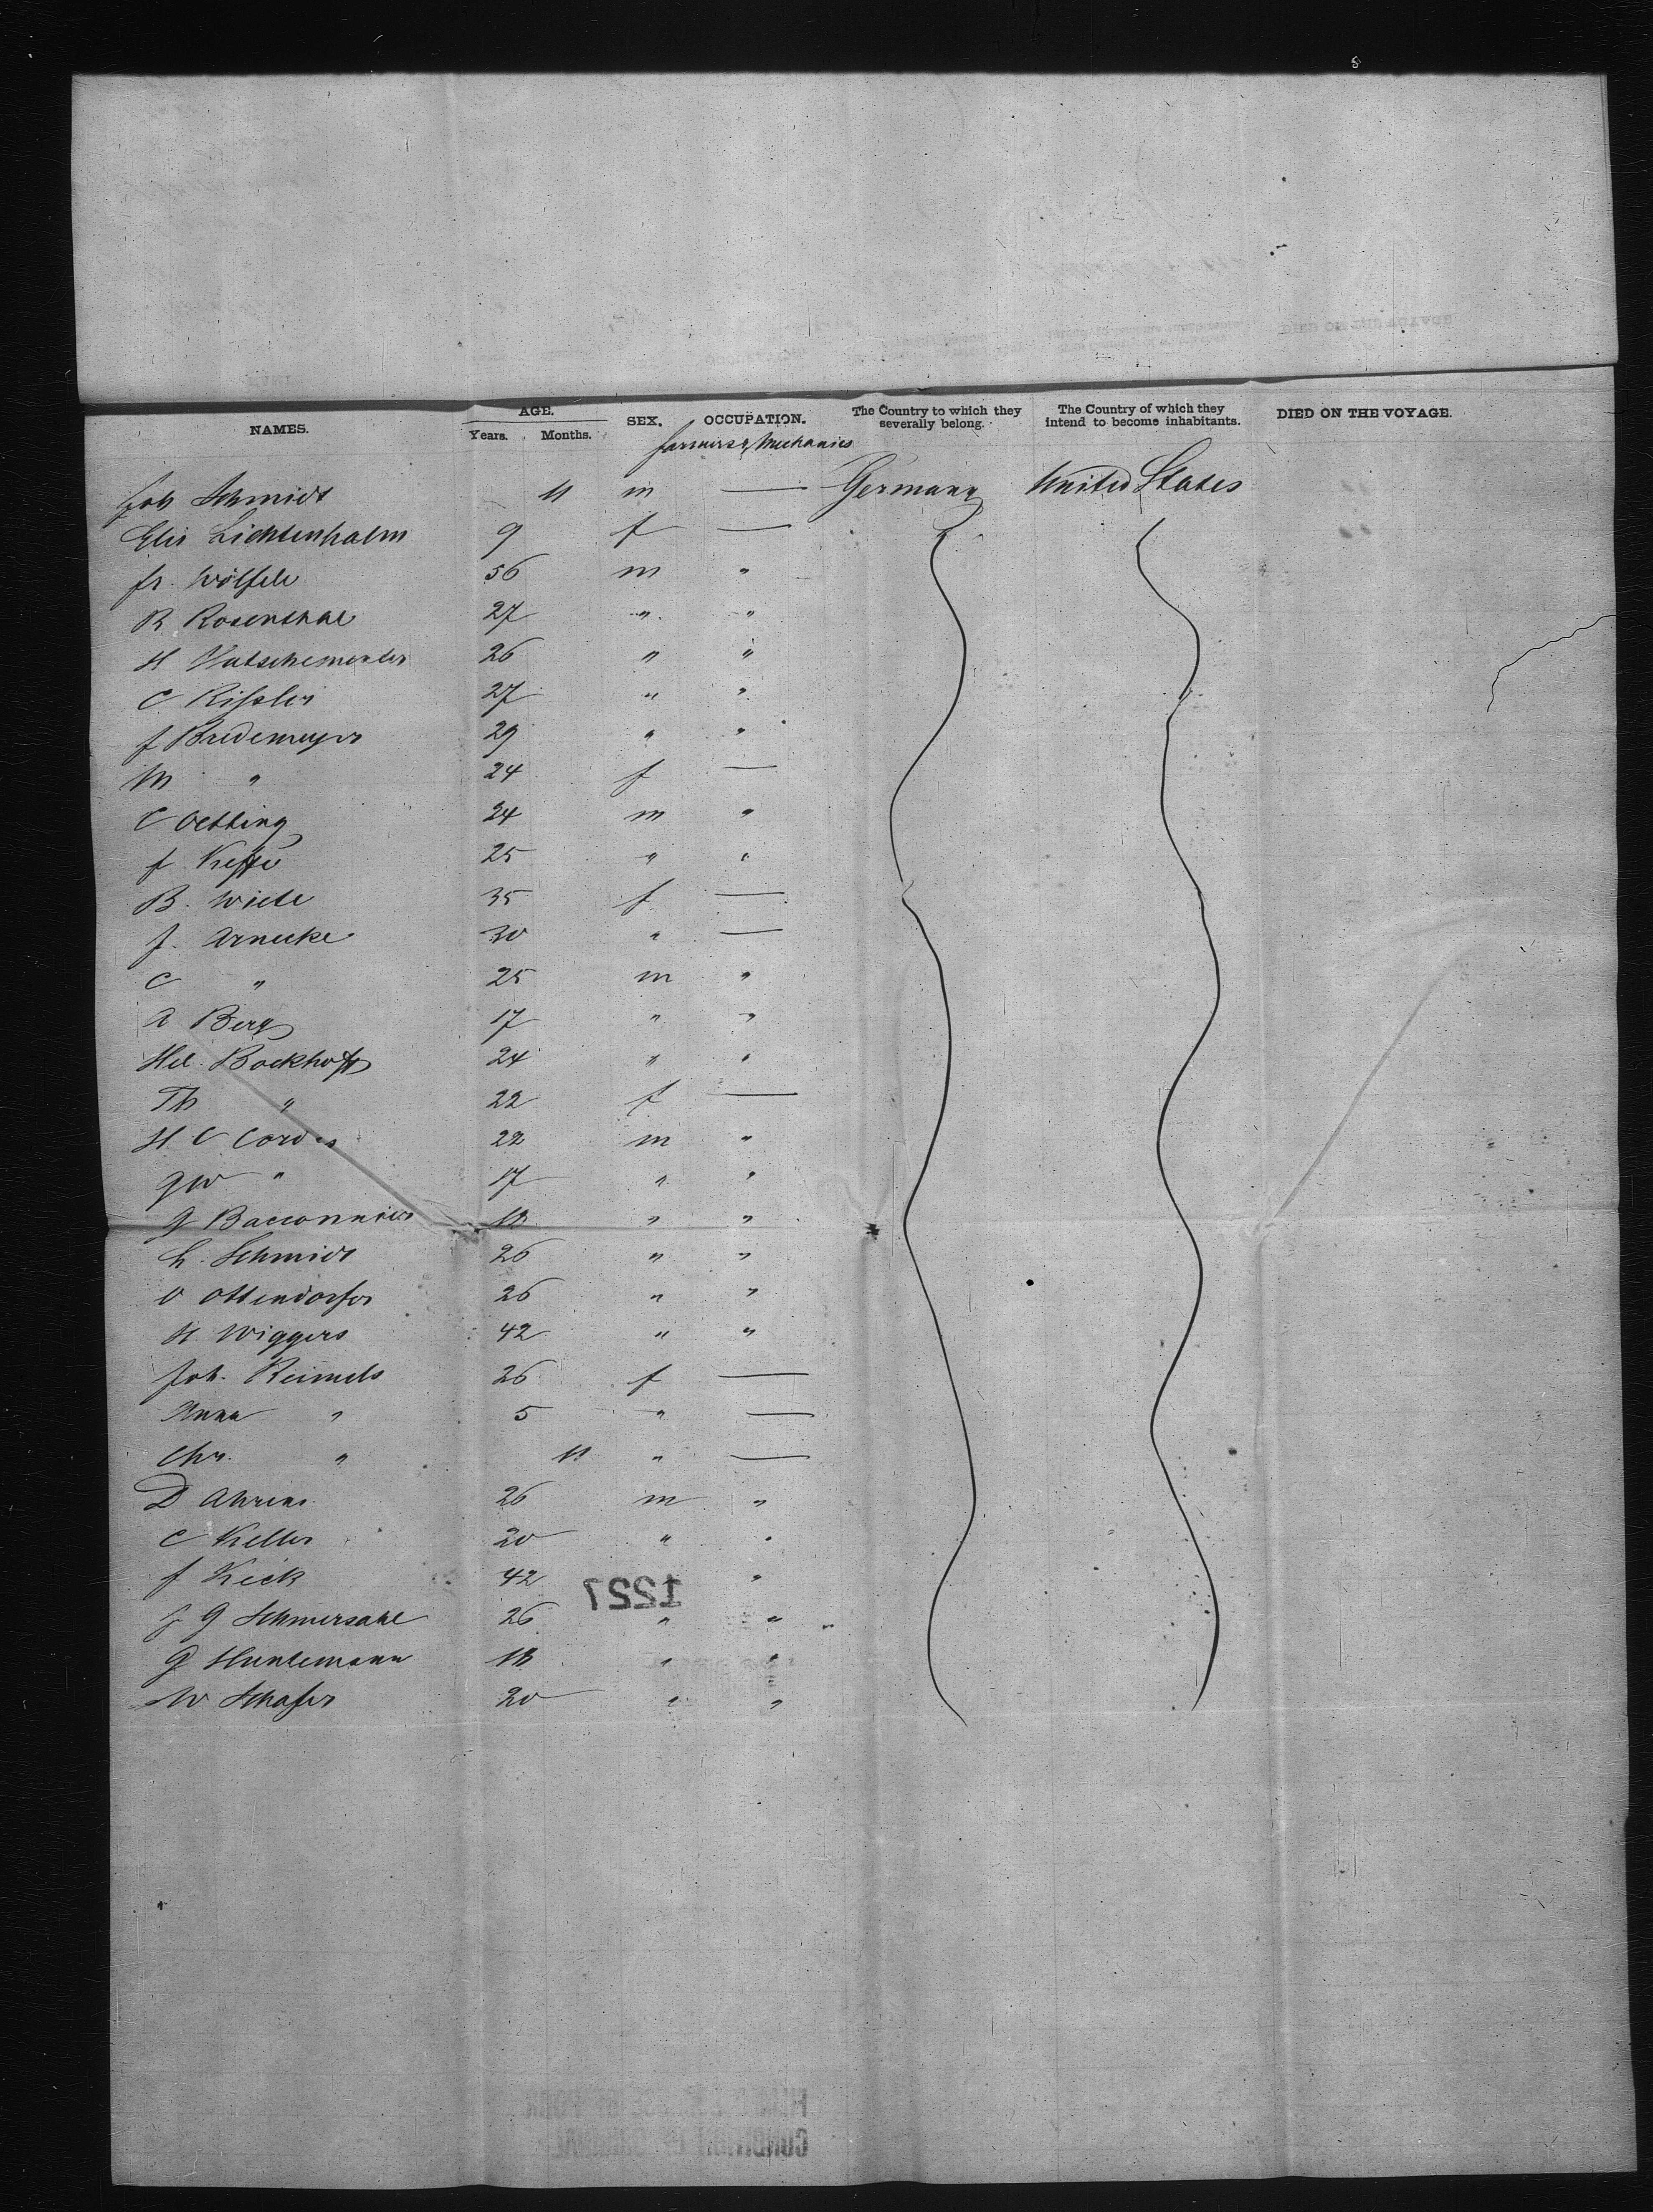 NAMES. AGE. Years. Months. SEX. OCCUPATION. The Country to which they severally belong. The Country of which they intend to become inhabitants. DIED ON THE VOYAGE.
farmers & Mechanics
Joh Schmidt 11 m — Germany United States
Elis Lichtenhalm 9 f —
fr. Wölfele 56 m "
R Rosenthal 27 " "
H 26 " "
C Rissler 27 " "
f Bredemeyer 29 " "
M " 24 f —
C Oetting 24 m "
f 25 " "
B. Wiele 35 f —
J. Arnecke 30 " —
C " 25 m "
A Berg 17 " "
Hel. Bockhoff 24 " "
Th " 22 f —
H C Cordes 22 m "
GW " 17 " "
G 18 " "
L. Schmidt 26 " "
O Ottendorfer 26 " "
H Wiggers 42 " "
Joh. Reimels 26 f —
Anna " 5 " —
Chr. " 11 " —
D Ahrens 26 m "
C Keller 20 " "
f Keck 42 "
1227
J G Schmersahl 26 " "
G Huntemann 18 " "
W Schafer 20 " "